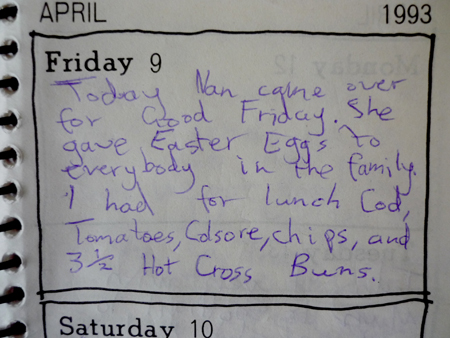 APRIL 1993
Friday 9
Today Nan came over
for Good Friday. She
gave Easter Eggs to
everybody in the family.
I had for lunch Cod,
Tomatoes, Colsore, chips, and
3 ½ Hot Cross Buns.
Saturday 10